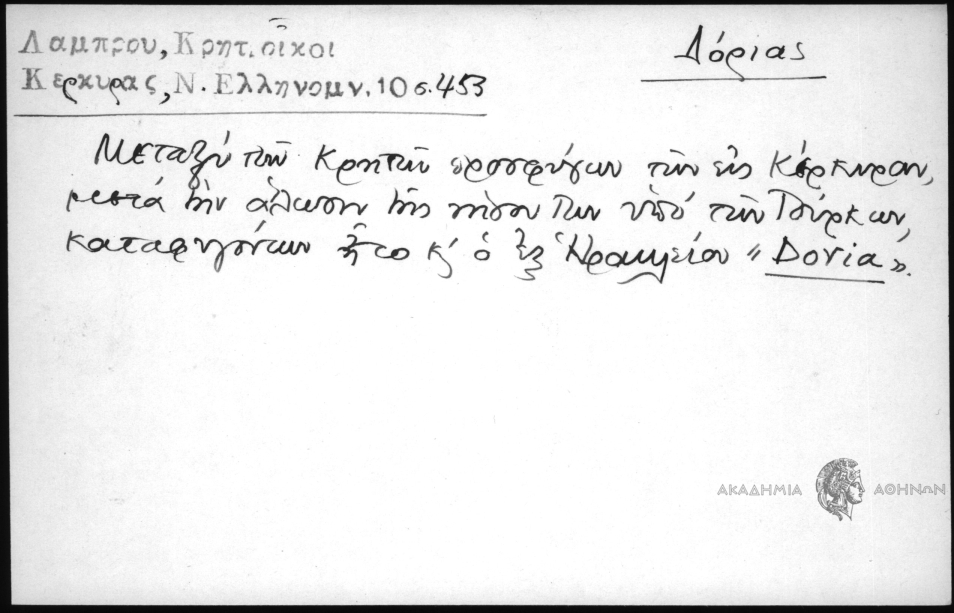 Λαμπρου, Κρητ. οἶκοι
Δόριας
Κερκυρας, Ν. Ελληνομν. 10 σ. 453
Μεταξύ τῶν Κρητῶν προσφύγων τῶν εἰς Κέρκυραν,
μετά τήν ἅλωσιν τῆς νήσου των ὑπό τῶν Τούρκων,
καταφυγόντων ἦτο κ' ὁ ἐξ Ἡρακλείου "Doria".
ΑΚΑΔΗΜΙΑ ΑΘΗΝΩΝ